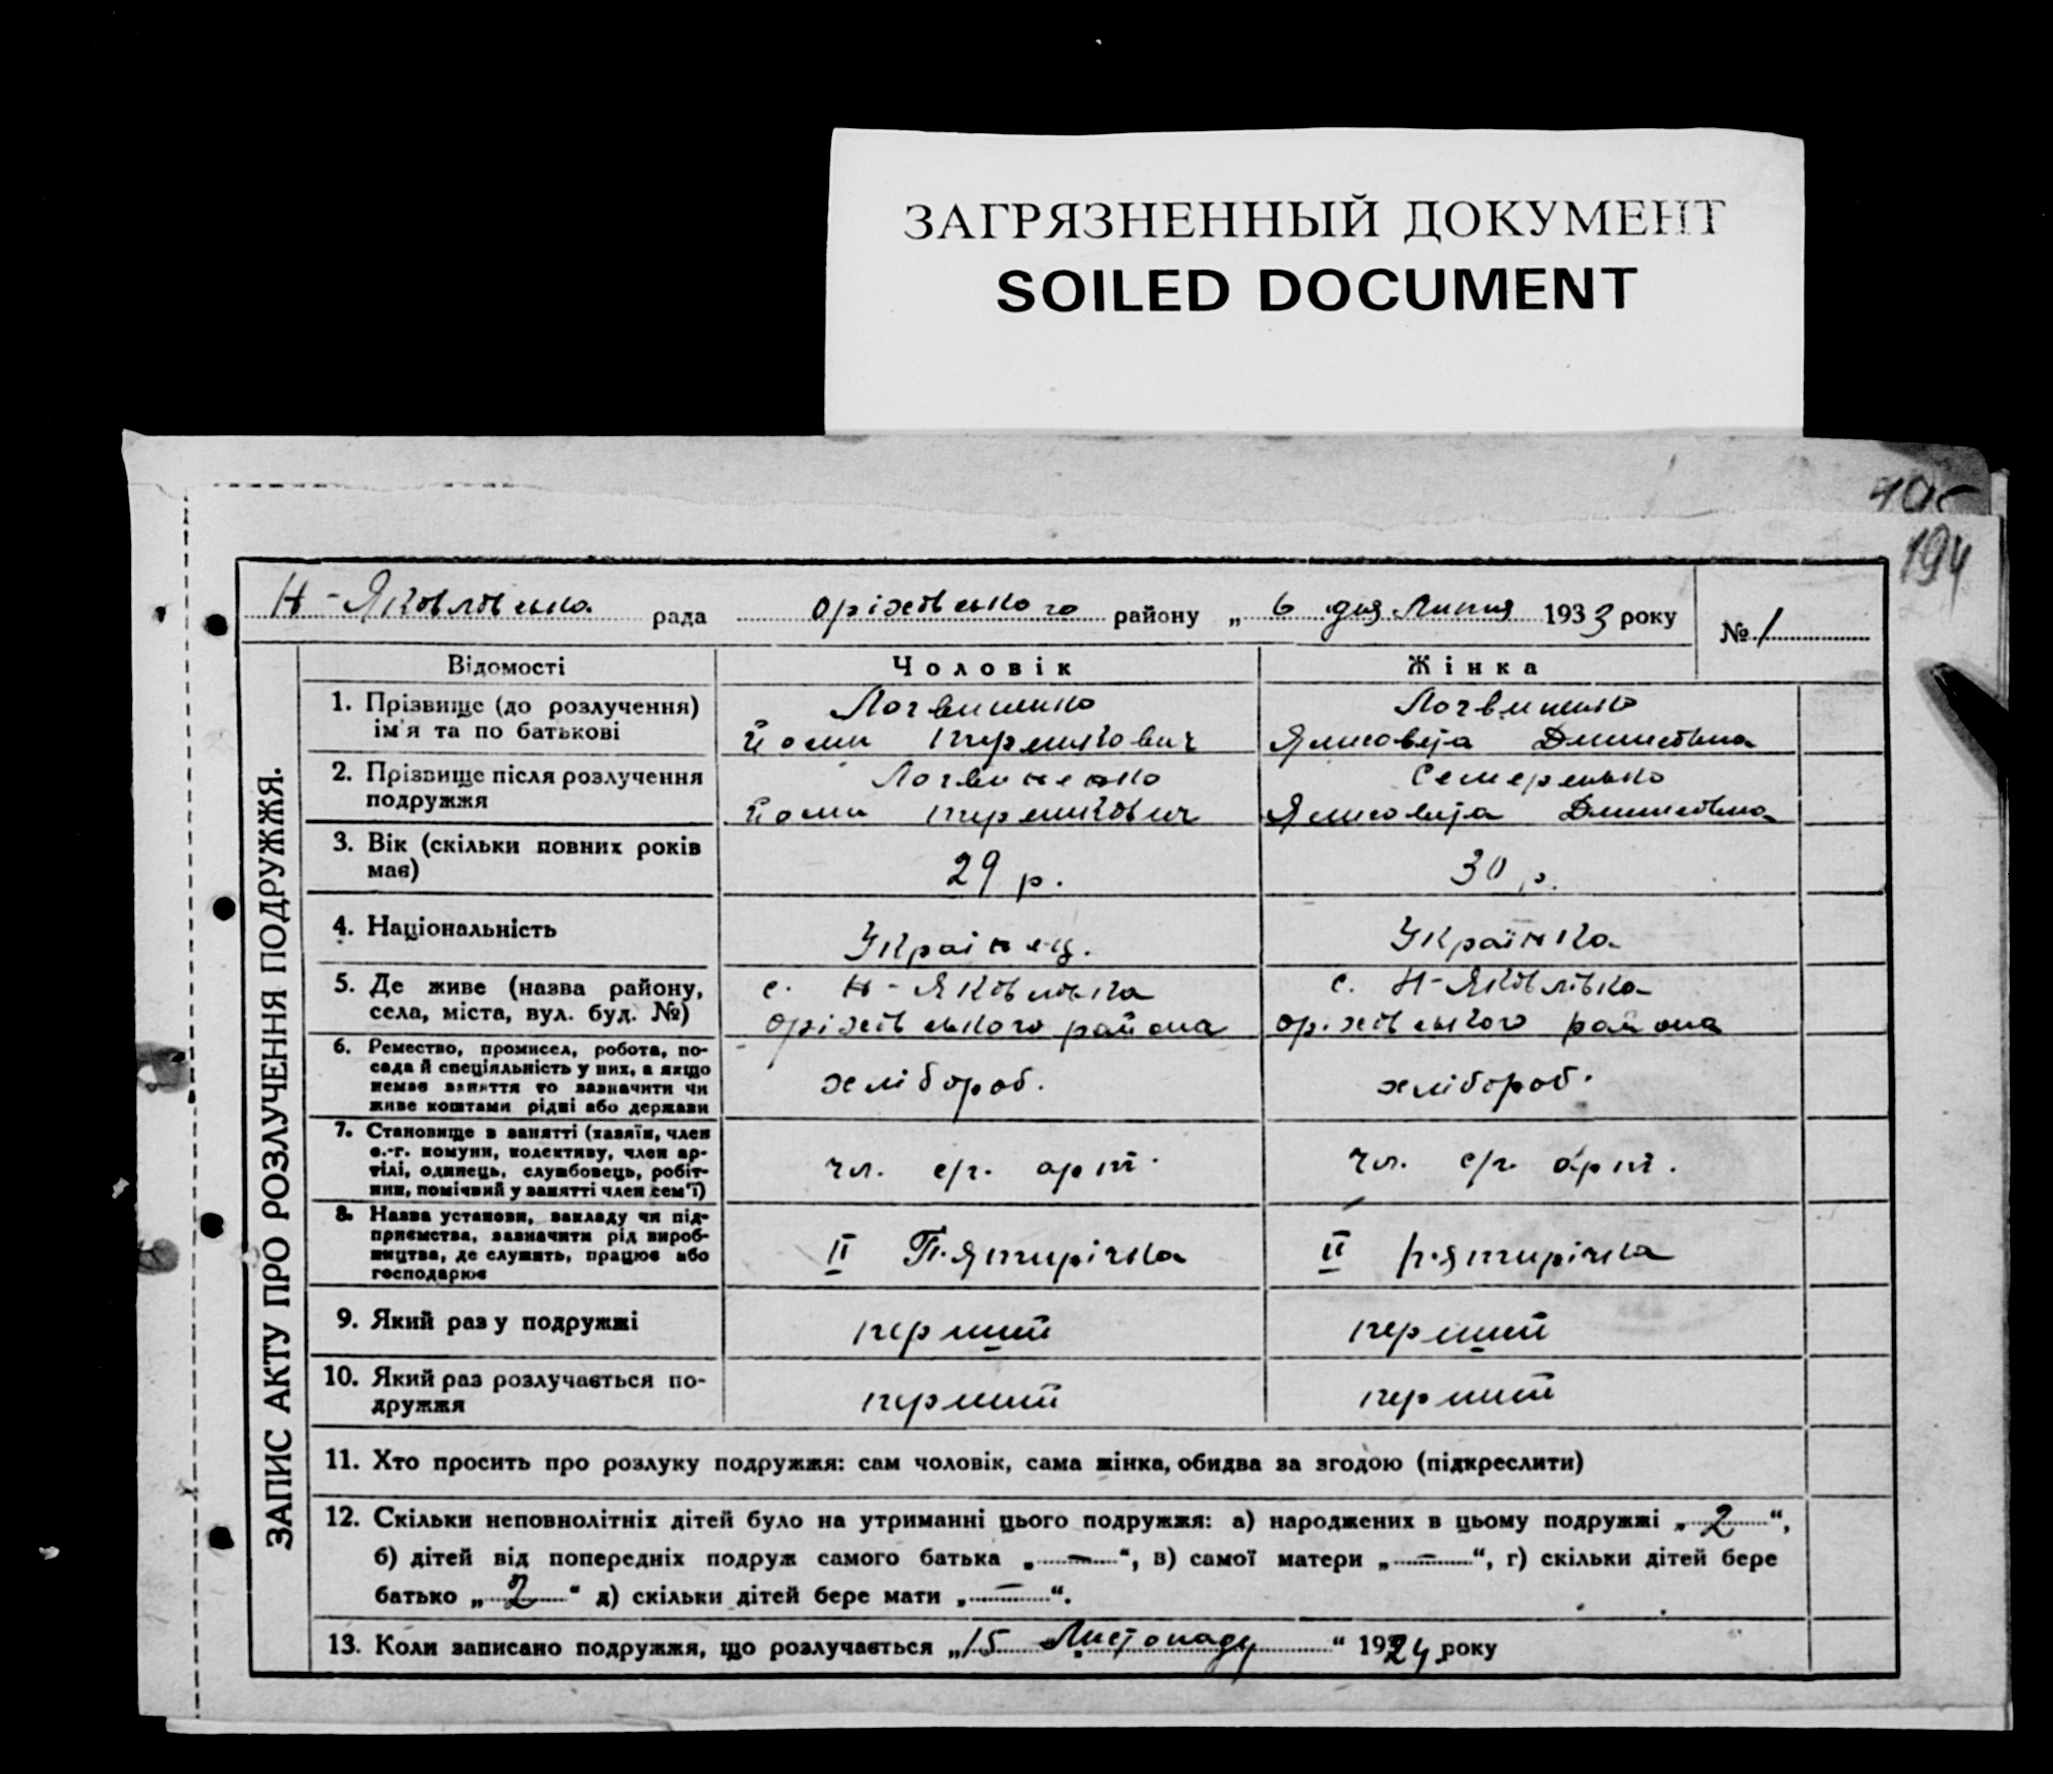 ЗАГРЯЗНЕННЫЙ ДОКУМЕНТ
SOILED DOCUMENT
194
Н-Яковлівська рада Оріхівського району „ 6 дня Липня 1933 року
№ 1
ЗАПИС АКТУ ПРО РОЗЛУЧЕННЯ ПОДРУЖЖЯ.
Відомості Чоловік Жінка
1. Прізвище (до розлучення) ім'я та по батькові
Логвиненко
Логвиненко
2. Прізвище після розлучення подружжя
Логвиненко
Семеренко
3. Вік (скільки повних років має)
29 р.
30 р.
4. Національність
Українец.
Українка
5. Де живе (назва району, села, міста, вул. буд. №)
с. Н-Яковлівка
Оріхівського района
с. Н-Яковлівка
Оріхівського района
6. Ремество, промисел, робота, по-
сада й спеціяльність у них, а якщо
немає заняття то зазначити чи
живе коштами рідні або держави
хлібороб.
хлібороб.
7. Становище в занятті (хазяїн, член
с.-г. комуни, колективу, член ар-
тілі, одинець, службовець, робіт-
ник, помічний у занятті член сем'ї)
чл. с/г. арт.
чл. с/г. арт.
8. Назва установи, закладу чи під-
приємства, зазначити рід вироб-
ництва, де служить, працює або
господарює
II П'ятирічка
II п'ятирічка
9. Який раз у подружжі
перший
перший
10. Який раз розлучається по-
дружжя
перший
перший
11. Хто просить про розлуку подружжя: сам чоловік, сама жінка, обидва за згодою (підкреслити)
12. Скільки неповнолітніх дітей було на утриманні цього подружжя: а) народжених в цьому подружжі „ 2 “,
б) дітей від попередніх подруж самого батька „ — “, в) самої матери „ — “, г) скільки дітей бере
батько „ 2 “ д) скільки дітей бере мати „ — “.
13. Коли записано подружжя, що розлучається „15 Листопаду “ 1924 року